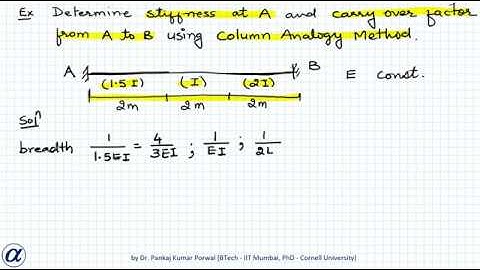 Ex Determine stiffness at A and carry over factor
from A to B using Column Analogy Method.
A B E const.
(1.5I) (I) (2I)
2m 2m 2m
Solⁿ
breadth 1/1.5EI = 4/3EI ; 1/EI ; 1/2L
α
by Dr. Pankaj Kumar Porwal [BTech - IIT Mumbai, PhD - Cornell University]